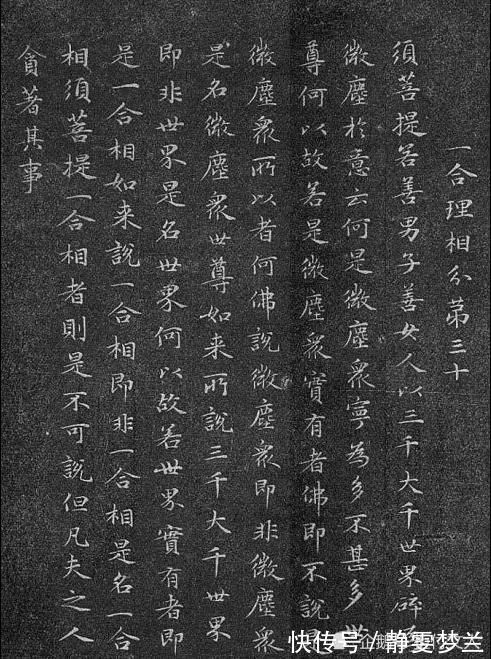 一合理相分苐三十
須菩提若善男子善女人以三千大千世界碎
微塵於意云何是微塵衆寧為多不甚多世
尊何以故若是微塵衆實有者佛即不說
微塵衆所以者何佛說微塵衆即非微塵衆
是名微塵衆世尊如来所說三千大千世界
即非世界是名世界何以故若世界實有者即
是一合相如来說一合相即非一合相是名一合
相須菩提一合相者則是不可說但凡夫之人
貪著其事
快传号/静雯梦兰